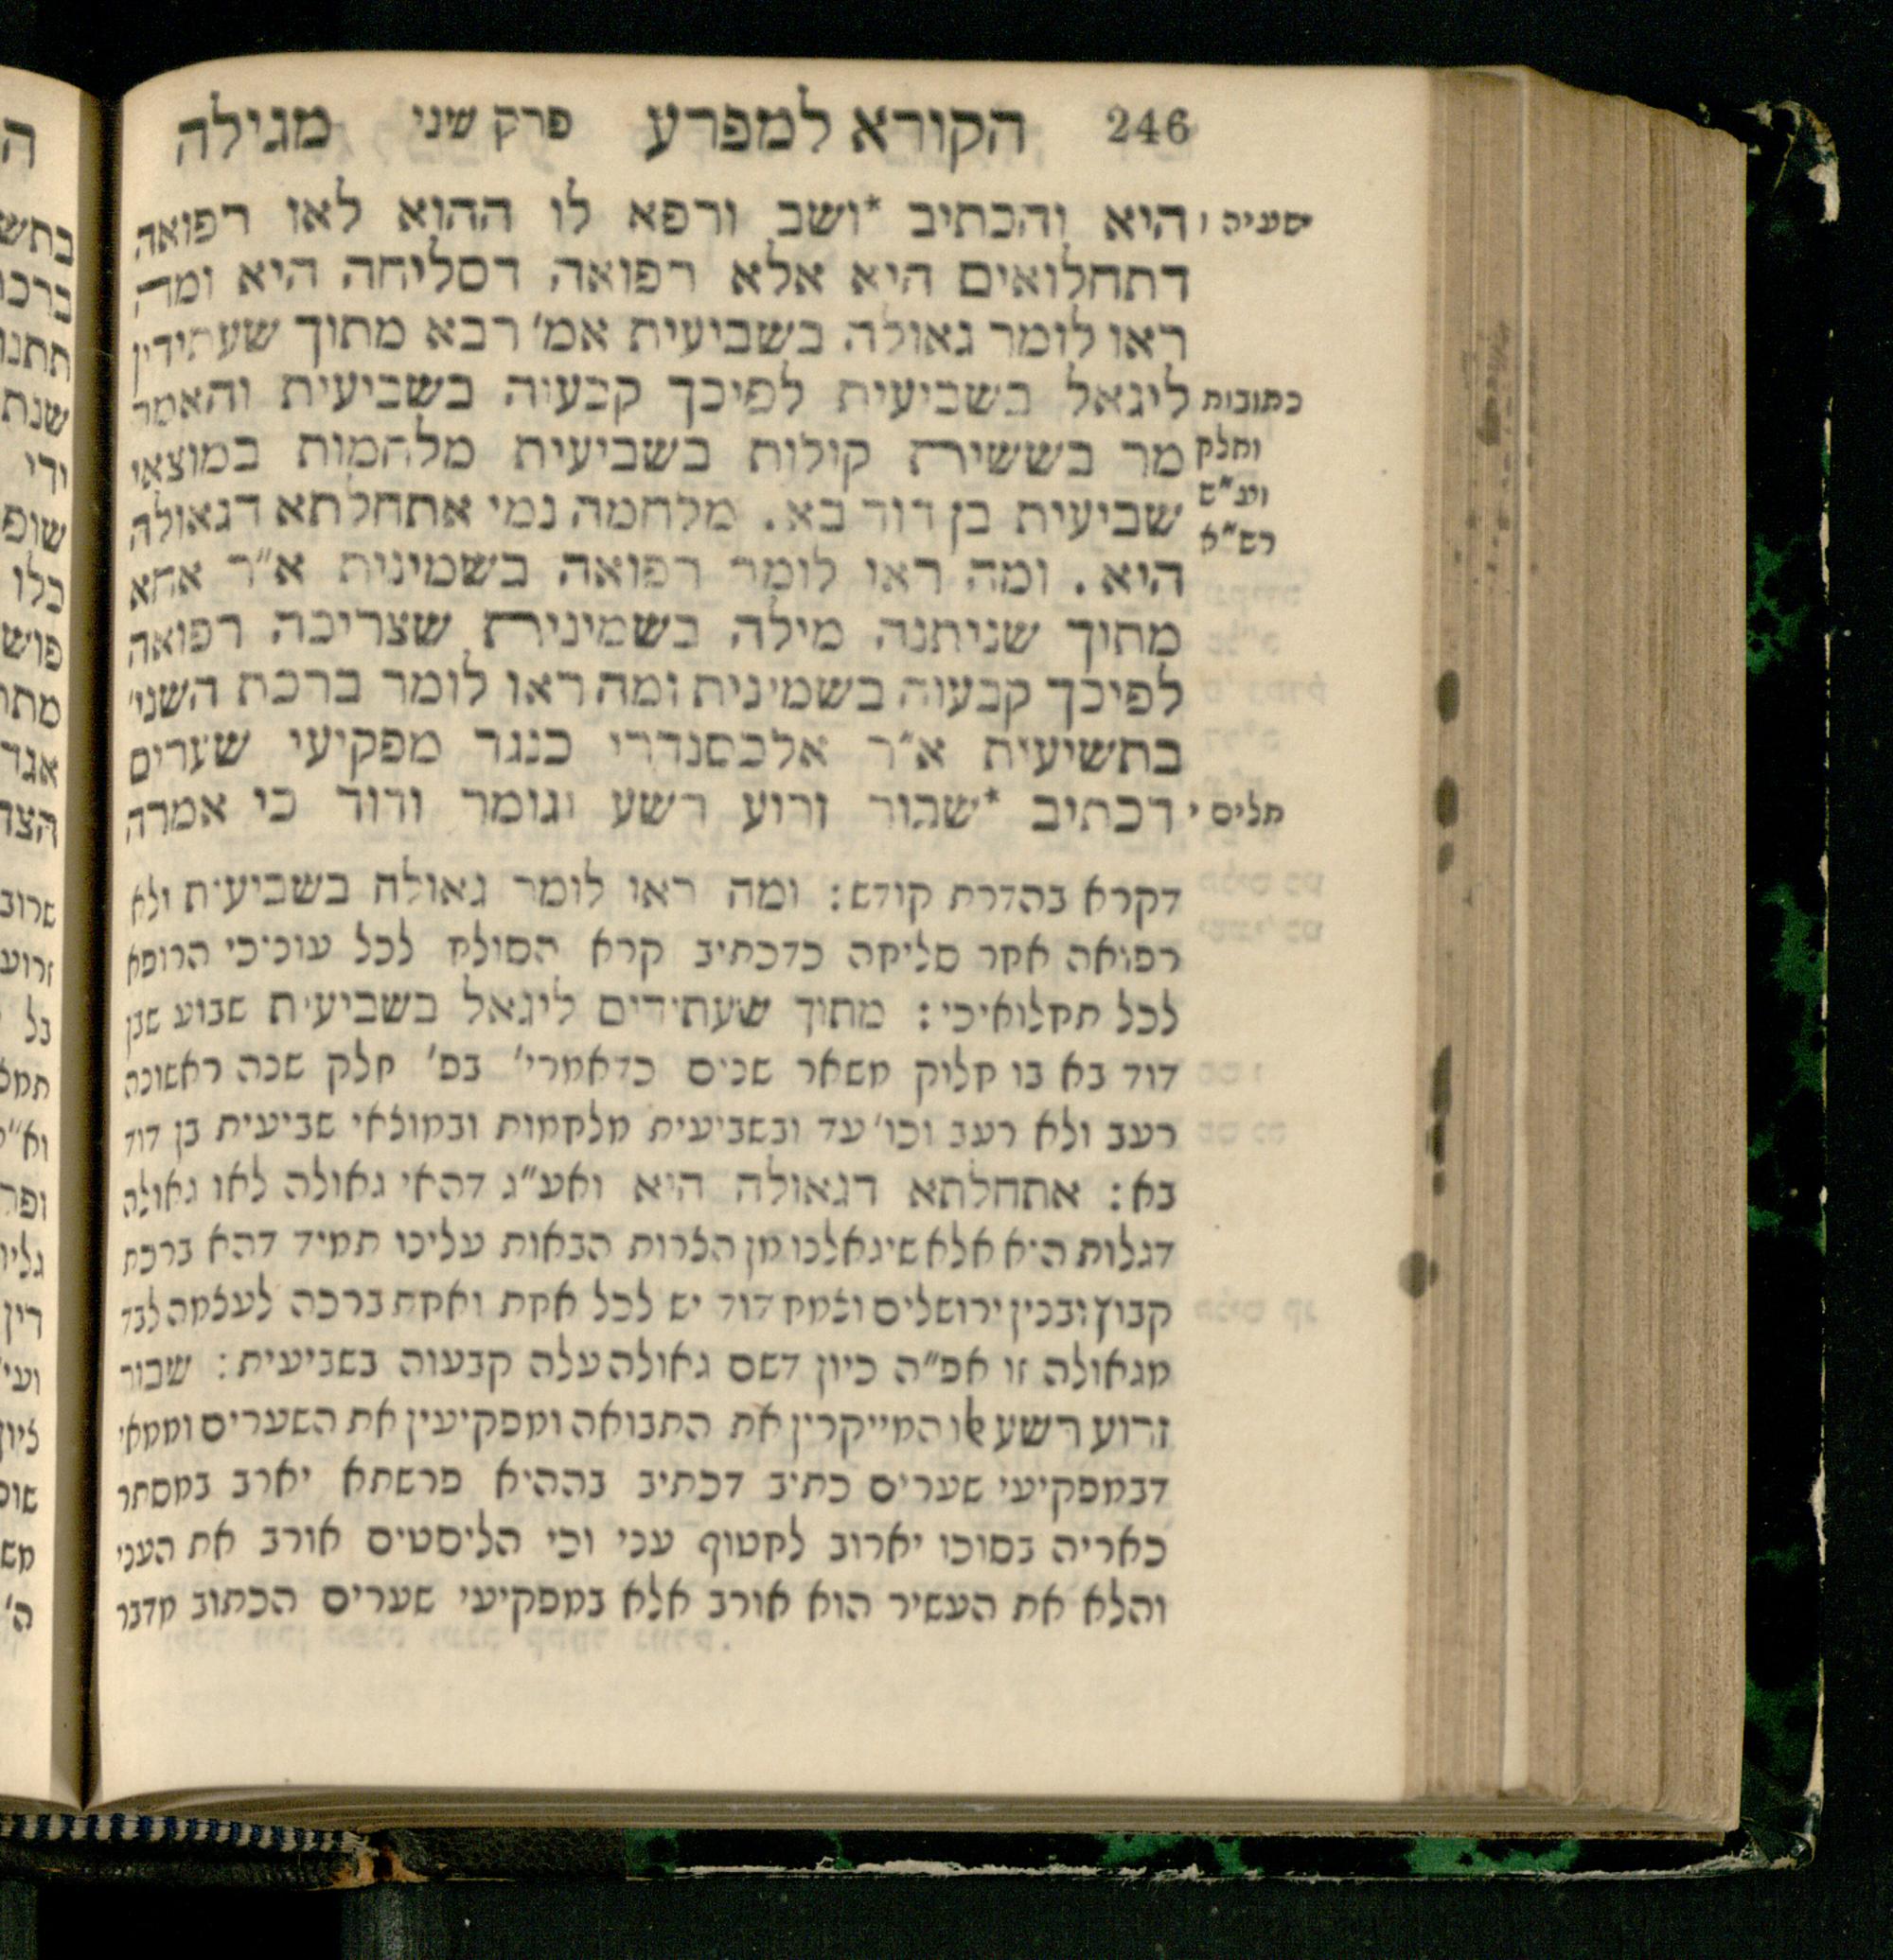 246 הקורא למפרע פרק שני מגילה
ישעיה ו
היא והכתיב *ושב ורפא לו ההוא לאו רפואה
דתחלואים היא אלא רפואה דסליחה היא ומה
ראו לומר גאולה בשביעית אמ' רבא מתוך שעתידין
כתובות
ליגאל בשביעית לפיכך קבעוה בשביעית והאמר
וחלק
מר בששית קולות בשביעית מלחמות במוצאי
וע"ש
שביעית בן דוד בא. מלחמה נמי אתחלתא דגאולה
רש"א
היא. ומה ראו לומר רפואה בשמינית א"ר אחא
מתוך שניתנה מילה בשמינית שצריכה רפואה
לפיכך קבעוה בשמינית ומה ראו לומר ברכת השני'
בתשיעית א"ר אלכסנדרי כנגד מפקיעי שערים
תלים י
דכתיב *שבור זרוע רשע וגומר ודוד כי אמרה
דקרא בהדרת קודש: ומה ראו לומר גאולה בשביעית ולא
רפואה אחר סליחה כדכתיב קרא הסולח לכל עוניכי הרופא
לכל תחלואיכי: מתוך שעתידים ליגאל בשביעית שבוע שבן
דוד בא בו חלוק משאר שנים כדאמרי' בפ' חלק שנה ראשונה
רעב ולא רעב וכו' עד ובשביעית מלחמות ובמוצאי שביעית בן דוד
בא: אתחלתא דגאולה היא ואע"ג דהאי גאולה לאו גאולה
דגלות היא אלא שיגאלנו מן הצרות הבאות עלינו תמיד דהא ברכת
קבוץ ובנין ירושלים וצמח דוד יש לכל אחת ואחת ברכה לעצמה לבד
מגאולה זו אפ"ה כיון דשם גאולה עלה קבעוה בשביעית: שבור
זרוע רשע אלו המייקרין את התבואה ומפקיעין את השערים וממאי
דבמפקיעי שערים כתיב דכתיב בההיא פרשתא יארב במסתר
כאריה בסוכו יארוב לחטוף עני וכי הליסטים אורב את העני
והלא את העשיר הוא אורב אלא במפקיעי שערים הכתוב מדבר